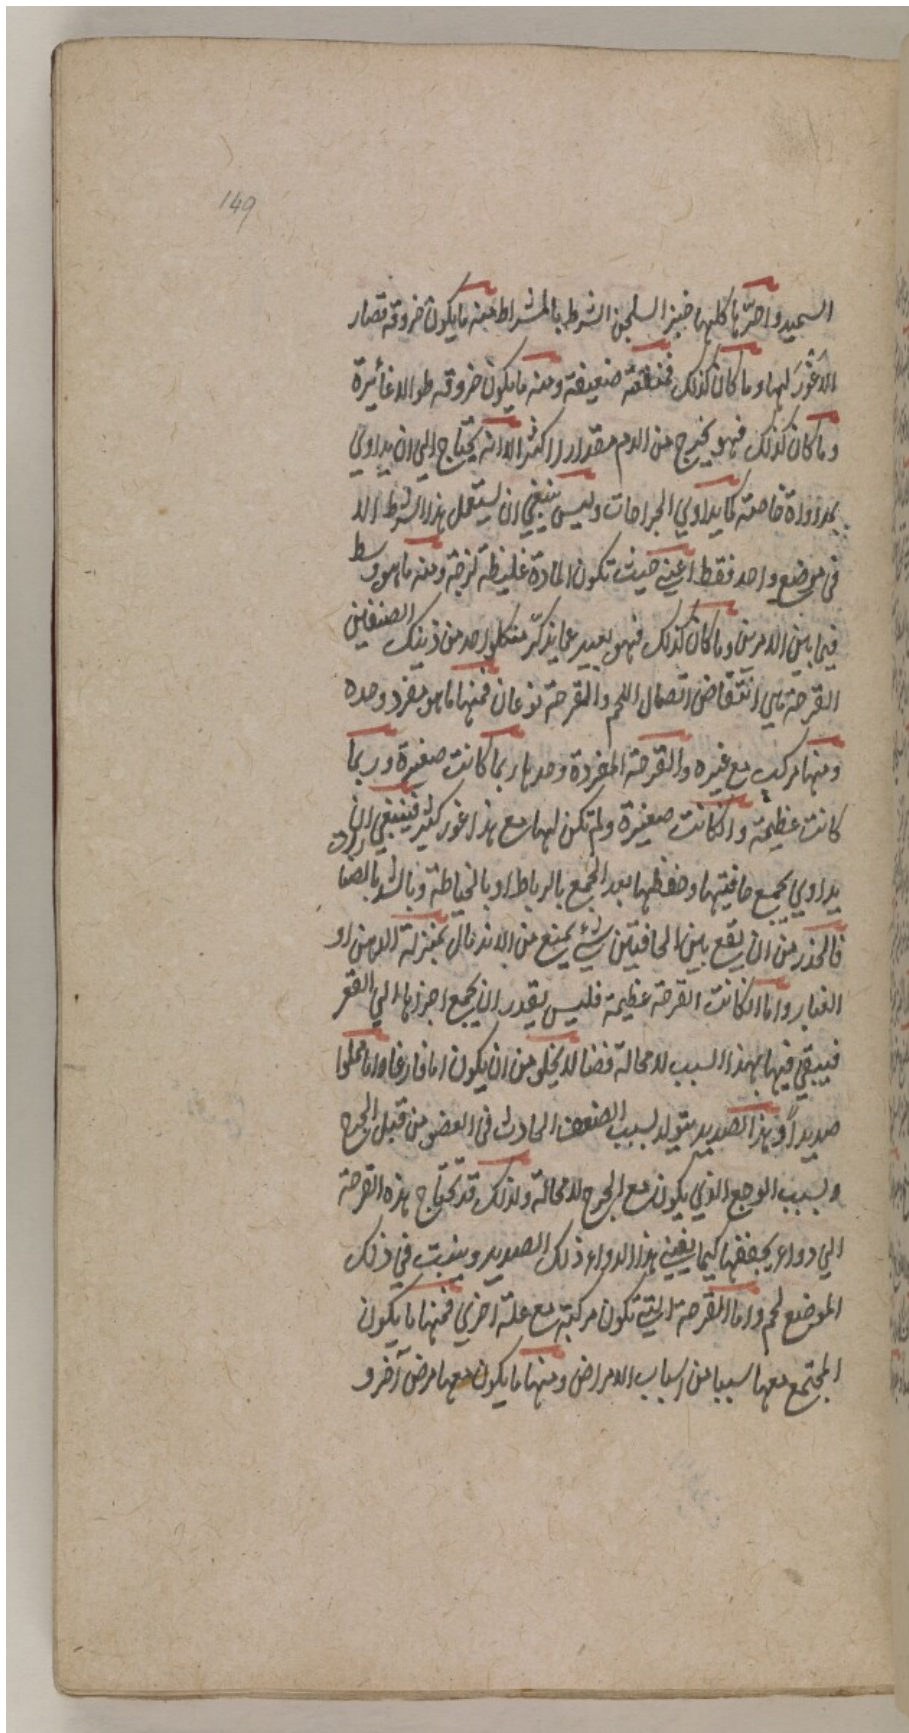 149
السميد واحرّها كلها خبز السلجن الشرط بالمشراط منه ما يكون خروقه قصار
لا غور لها وما كان كذلك فمنفعته ضعيفة ومنه ما يكون خروقه طوالا غائرة
وما كان كذلك فهو يخرج من الدم مقدارا اكثر الا انه يحتاج الي ان يداوي
بمداواة خاصته كما يداوي الجراحات وليس ينبغي ان يستعمل هذا الشرط الا
في موضع واحد فقط اعني حيث تكون المادة غليظة لزجة ومنه ما هو وسط
فيما بين الامرين وما كان كذلك فهو بعيد عما يذكر من كل واحد من ذينك الصنفين
القرحة هي انتقاض اتصال اللحم والقرحة نوعان فمنها ما هو مفرد وحده
ومنها مركب مع غيره والقرحة المفردة وحدها ربما كانت صغيرة وربما
كانت عظيمة وان كانت صغيرة ولم تكن لها مع هذا غور كثير فينبغي ان
يداوي بجمع حافتيها وحفظها بعد الجمع بالرباط او بالخياطة وبالشد بالصنارات
فالحذر من ان يقع بين الحافتين شيء يمنع من الاندمال بمنزلة الدهن او
الغبار واما ان كانت القرحة عظيمة فليس يقدر ان يجمع اجزاها الي القعر
فيبقي فيها بهذا السبب لا محالة فضا لا يخلو من ان يكون اما فارغا واما مملوا
صديدا وهذا الصديد يتولد بسبب الضعف الحادث في العضو من قبل الجرح
وبسبب الوجع الذي يكون مع الجرح لا محالة ولذلك قد تحتاج هذه القرحة
الي دواء يجففها كيما يفني هذا الدواء ذلك الصديد وينبت في ذلك
الموضع لحم واما القرحة التي تكون مركبة مع علة اخري فمنها ما يكون
المجتمع معها سببا من اسباب الامراض ومنها ما يكون معها مرض آخر و